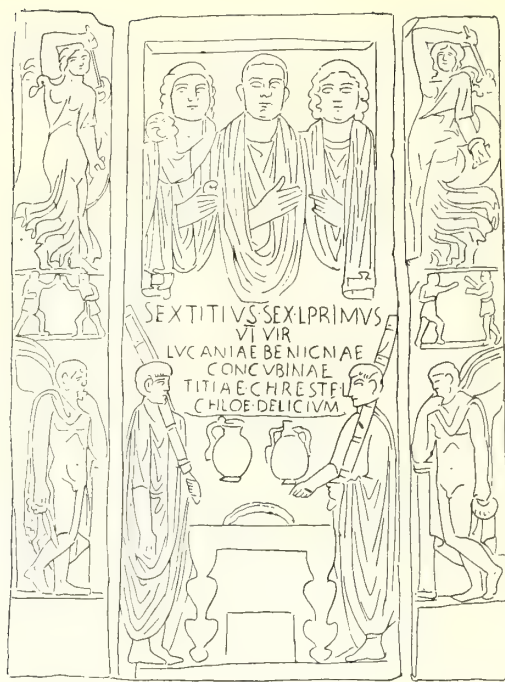 SEX TITIVS·SEX·L PRIMVS
VI VIR
LVCANIAE BENIGNIAE
CONCVBINAE
TITIAE·CHRESTE·L
CHLOE·DELICIVM